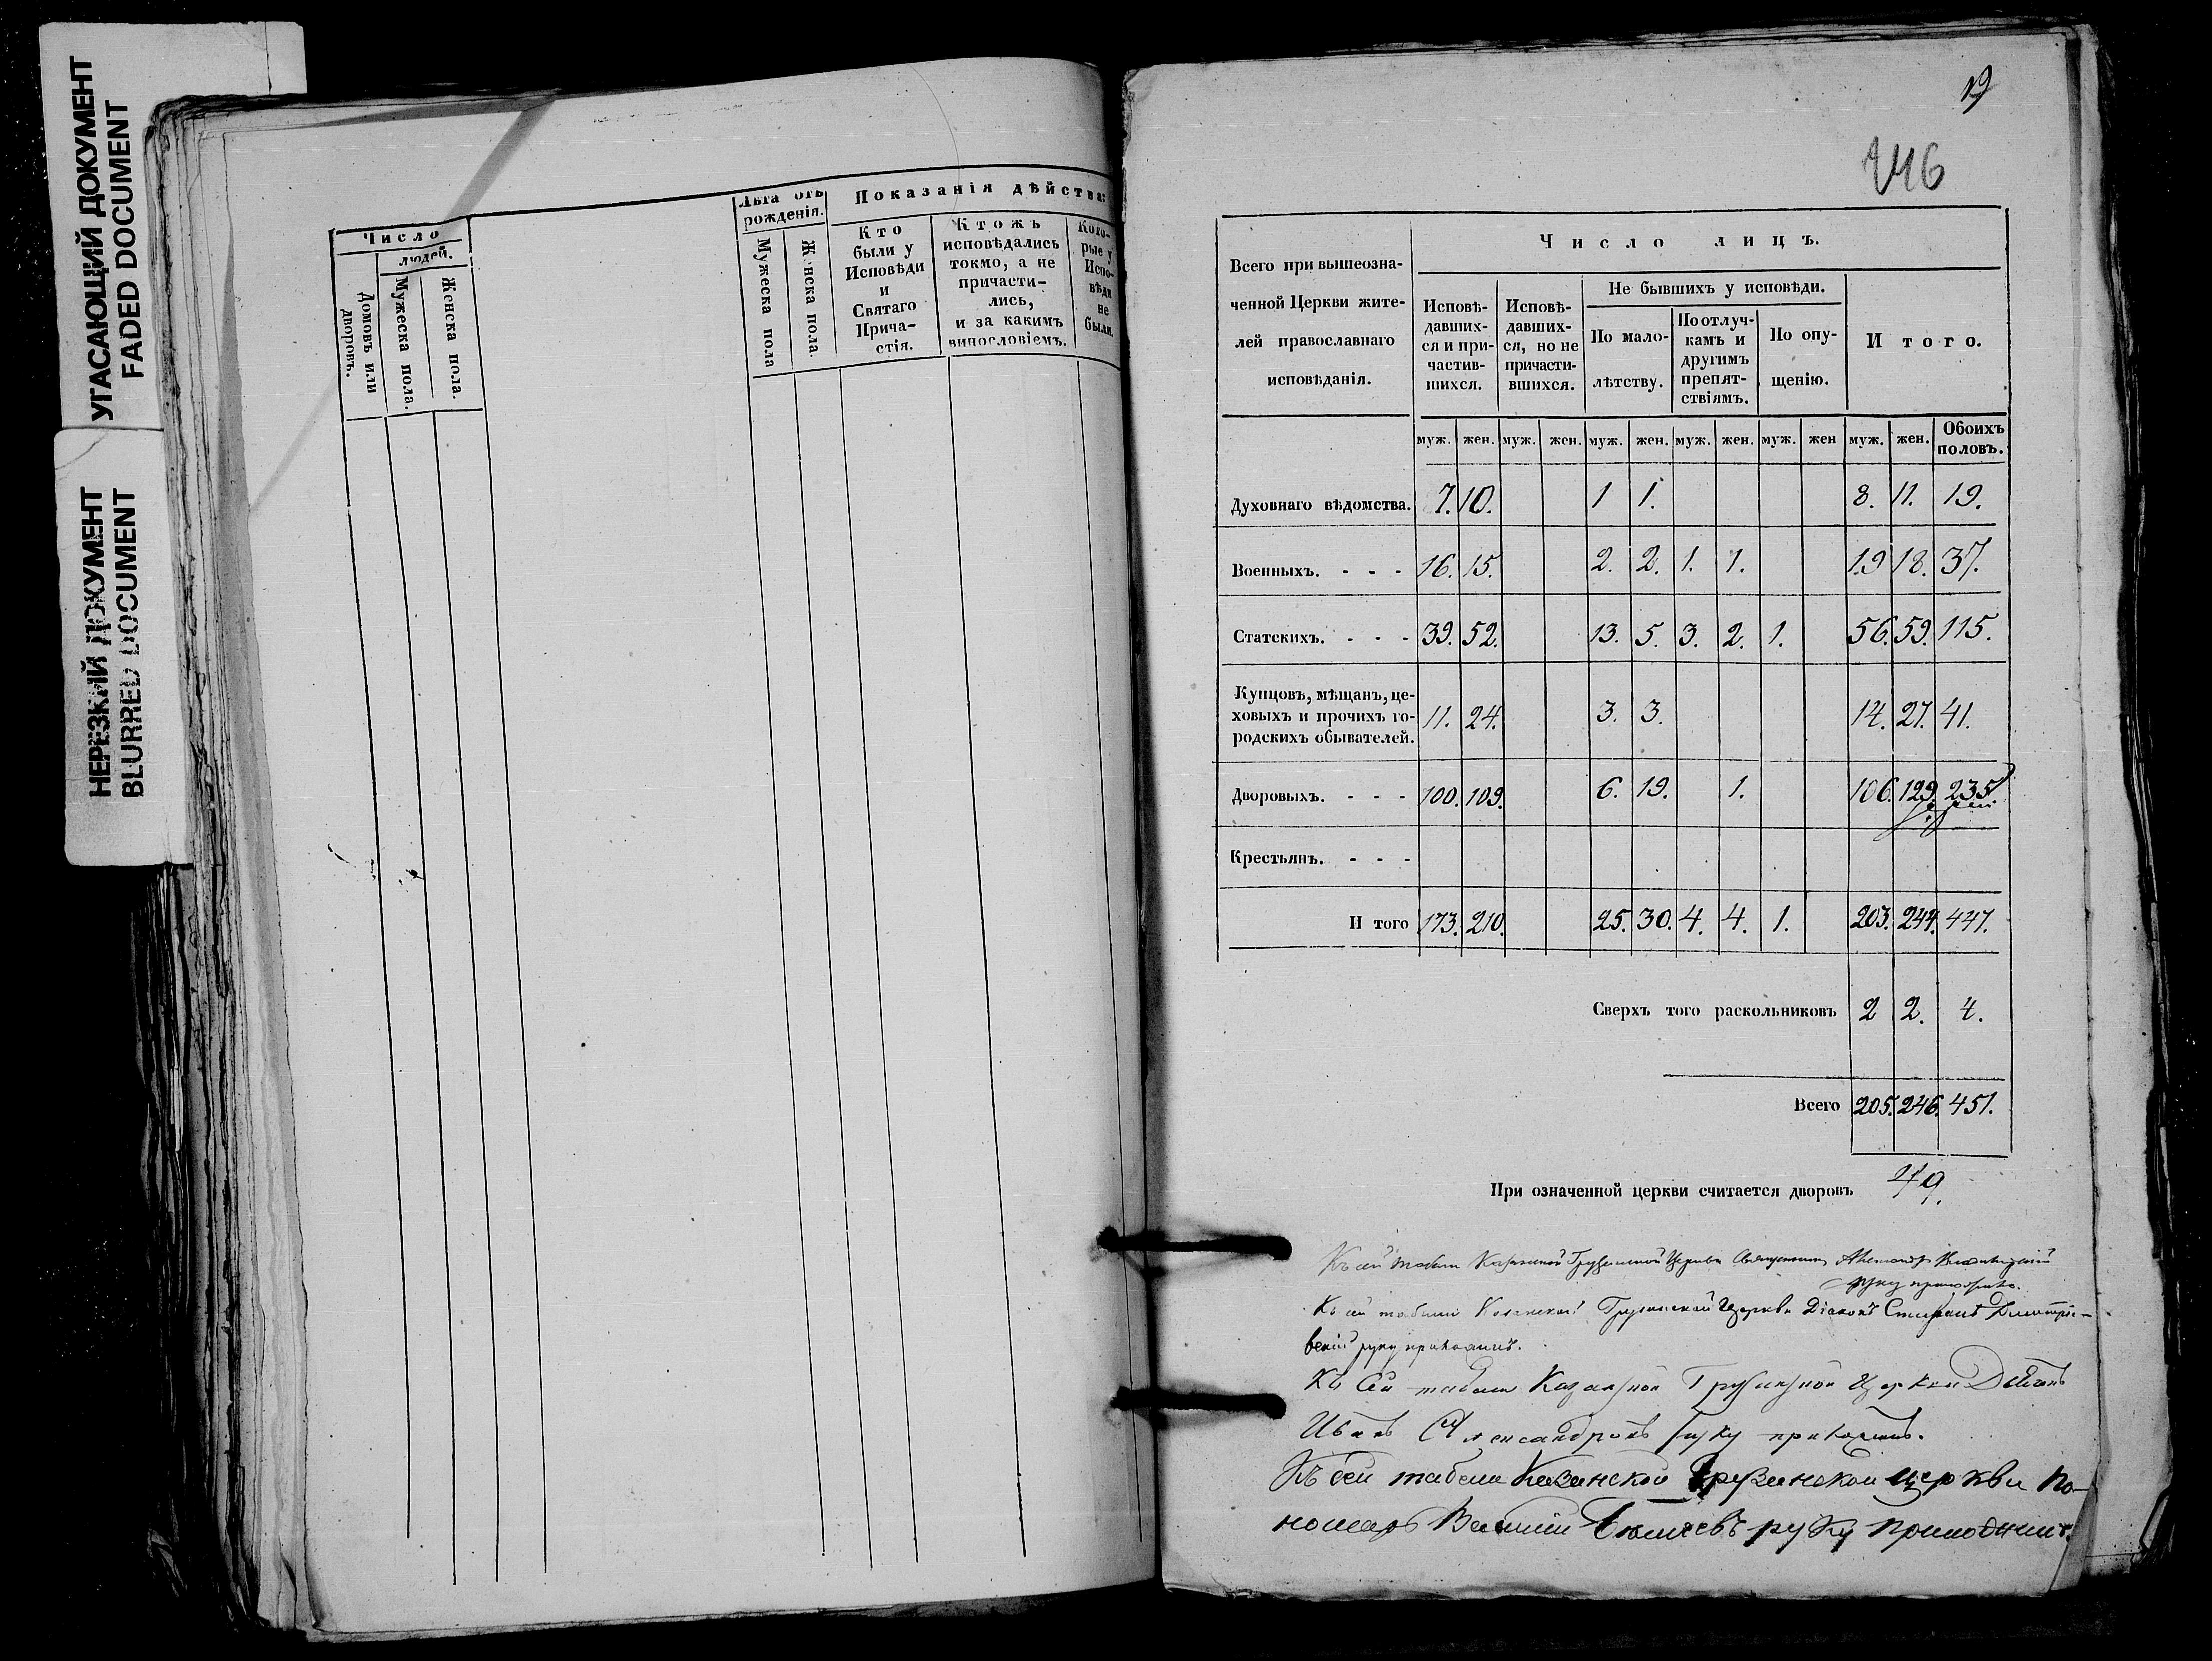 УГАСАЮЩИЙ ДОКУМЕНТ
FADED DOCUMENT
НЕРЕЗКИЙ ДОКУМЕНТ
BLURRED DOCUMENT
Число
людей.
Домовъ или дворовъ.
Мужеска пола.
Женска пола.
Лѣта отъ рожденія.
Мужеска пола
Женска пола.
Показанія дѣйства:
Кто
были у
Исповѣди
и
Святаго
Прича-
стія.
Ктожъ
исповѣдались
токмо, а не
причасти-
лись,
и за какимъ
винословіемъ.
Кото-
рые у
Испо-
вѣди
не
были.
19
446
Всего при вышеозна-
ченной Церкви жите-
лей православнаго
исповѣданія.
Число лицъ.
Исповѣ-
давших-
ся и при-
частив-
шихся.
Исповѣ-
давших-
ся, но не
причасти-
вшихся.
Не бывшихъ у исповѣди.
По мало-
лѣтству.
По отлуч-
камъ и
другимъ
препят-
ствіямъ.
По опу-
щенію.
Итого.
муж. жен. муж. жен. муж. жен. муж. жен. муж. жен муж. жен. Обоихъ половъ.
Духовнаго вѣдомства. 7. 10. 1 1. 8. 11. 19.
Военныхъ. - - - 16. 15. 2. 2. 1. 1. 19 18. 37.
Статскихъ. - - - 39. 52. 13. 5. 3. 2. 1. 56. 59. 115.
Купцовъ, мѣщанъ, це-
ховыхъ и прочихъ го-
родскихъ обывателей. 11. 24. 3. 3. 14. 27. 41.
Дворовыхъ. - - - 100. 109. 6. 19. 1. 106. 129. 235.
Крестьянъ. - - -
И того 173. 210. 25. 30. 4. 4. 1. 203. 244. 447.
Сверхъ того раскольниковъ 2 2. 4.
Всего 205. 246. 451.
При означенной церкви считается дворовъ 49.
Къ сей табели Казанской Грузинской Церкви Священникъ
руку приложилъ.
Къ сей табели Казанской Грузинской Церкви Діаконъ Стефанъ Димитрі-
евскій руку приложилъ.
Къ сей табели Казанской Грузинской Церкви
Иванъ Александровъ руку приложилъ.
Къ сей табели Казанской Грузинской церкви По-
номарь Василій руку приложилъ.